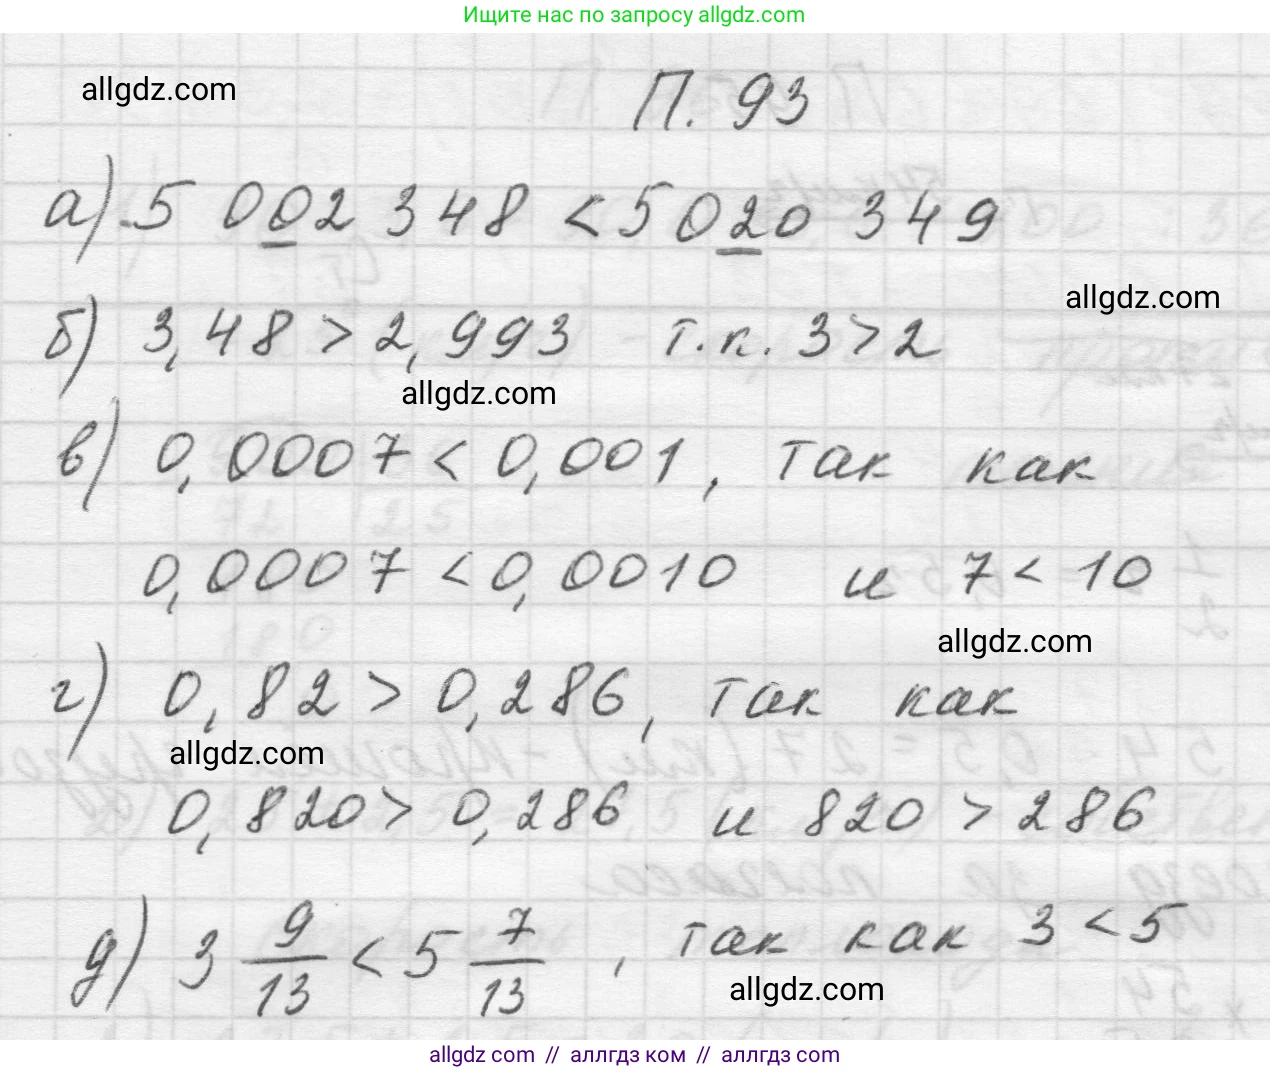 Ищите нас по запросу allgdz.com
allgdz.com
П. 93
а) 5 002 348 < 5 020 349
allgdz.com
б) 3,48 > 2,993 т.к. 3 > 2
allgdz.com
в) 0,0007 < 0,001, так как
0,0007 < 0,0010 и 7 < 10
allgdz.com
г) 0,82 > 0,286, так как
allgdz.com
0,820 > 0,286 и 820 > 286
д) 3 9/13 < 5 7/13, так как 3 < 5
allgdz.com
allgdz com // аллгдз ком // аллгдз com